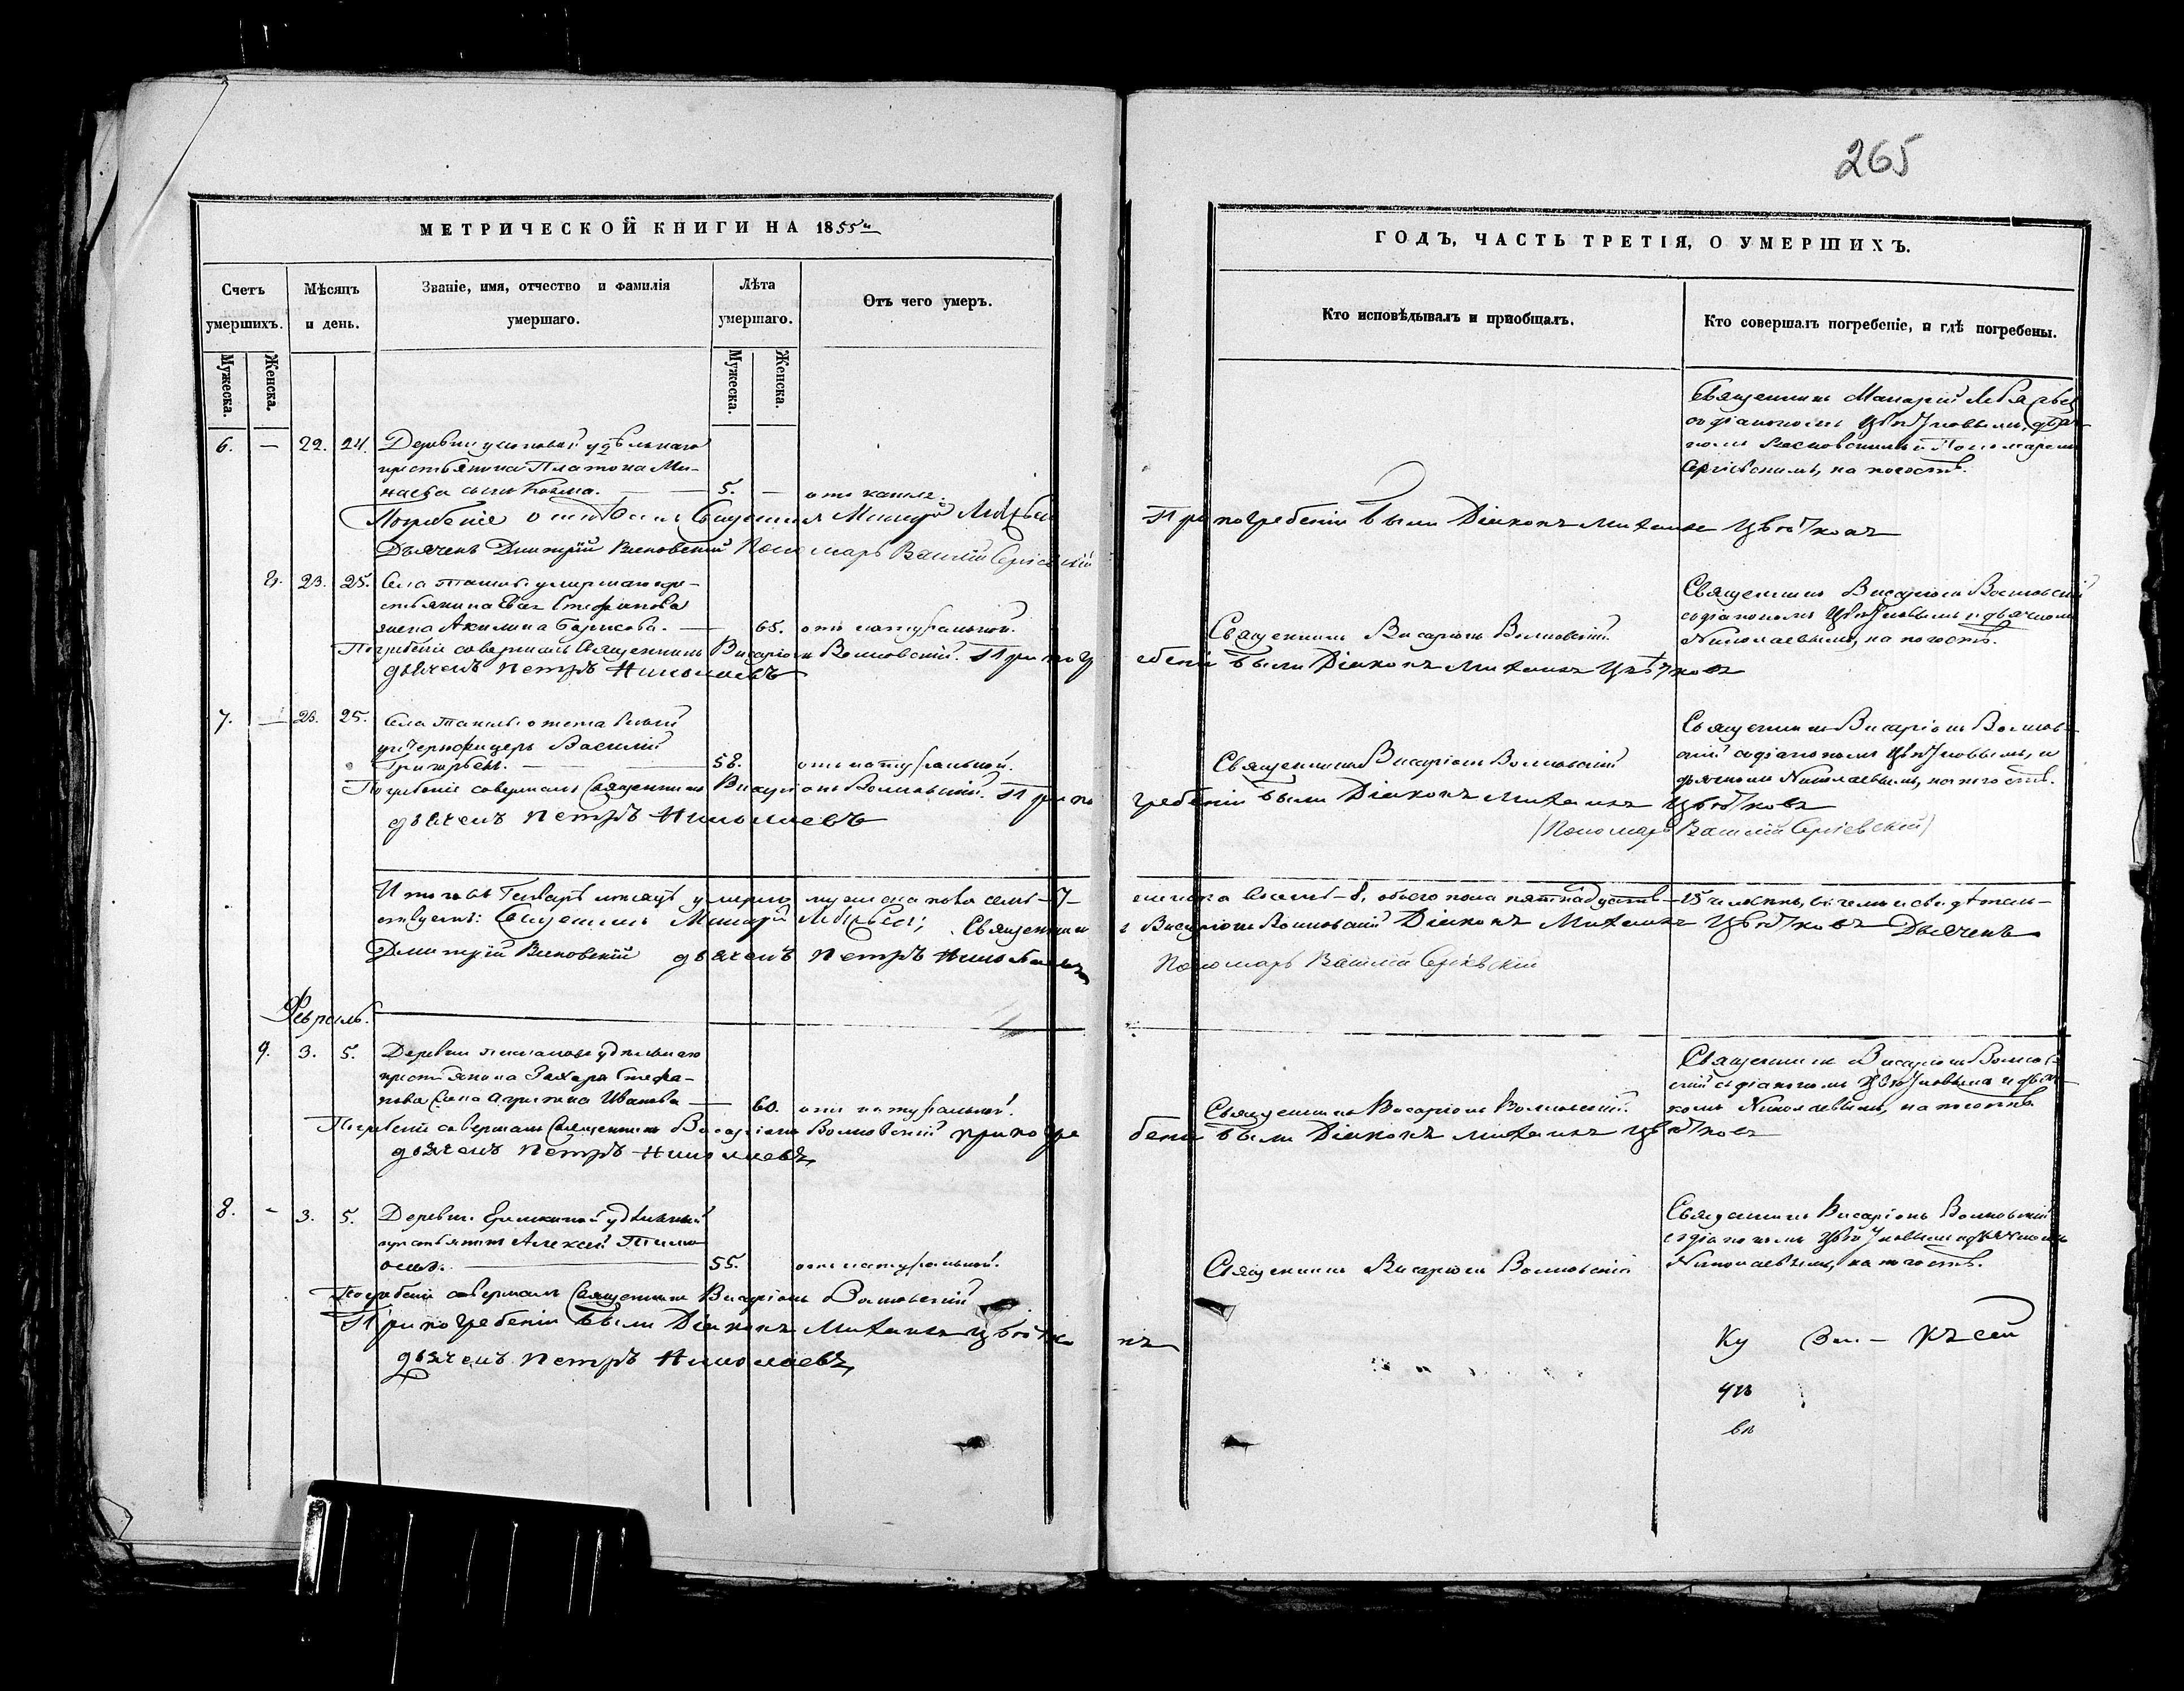 265
МЕТРИЧЕСКОЙ КНИГИ НА 1855й
Счетъ умершихъ.
Мужеска.
Женска.
Мѣсяцъ и день.
Званіе, имя, отчество и фамилія умершаго.
Лѣта умершаго.
Мужеска.
Женска.
Отъ чего умеръ.
ГОДЪ, ЧАСТЬ ТРЕТІЯ, О УМЕРШИХЪ.
Кто исповѣдывалъ и пріобщалъ.
Кто совершалъ погребеніе, и гдѣ погребены.
6. — 22. 24. Деревни удѣльнаго
крестьянина Платона Ми-
наева сынъ Козма. — 5. — отъ кашля.
Священникъ Макарій
съ діакономъ Цвѣтковымъ, дьяч-
комъ и Пономаремъ
Сергіевскимъ, на погостѣ.
Погребеніе Священникъ Макарій
При погребеніи были Діаконъ Михаилъ Цвѣтковъ
Дьячекъ Димитрій Пономарь Василій Сергіевскій
8. 23. 25. Села умершаго кре-
стьянина Стефанова
жена Акилина Борисова. — 65. отъ натуральной.
Священникъ Висаріонъ Волковскій.
Священникъ Висаріонъ Волковскій
съ діакономъ Цвѣтковымъ и дьячкомъ
Николаевымъ, на погостѣ.
Погребеніе совершалъ Священникъ Висаріонъ Волковскій. При погр
ебеніи были Діаконъ Михаилъ Цвѣтковъ
дьячекъ Петръ Николаевъ
7. — 23. 25. Села отставный
унтерофицеръ Василій
Григорьевъ. — 58. отъ натуральной.
Священникъ Висаріонъ Волковскій
Священникъ Висаріонъ Волков-
скій съ діакономъ Цвѣтковымъ, и
дьячкомъ Николаевымъ, на погостѣ.
Погребеніе совершалъ Священникъ Висаріонъ Волковскій. При по
гребеніи были Діаконъ Михаилъ Цвѣтковъ
дьячекъ Петръ Николаевъ
Пономарь Василій Сергіевскій
Итого въ Генварѣ мѣсяцѣ умерло мужеска пола семь — 7 —
женска восемь — 8, обоего пола пятнадцать — 15 человѣкъ, въ чемъ и свидѣтель-
ствуемъ: Священникъ Макарій Священник
ъ Висаріонъ Волковскій Діаконъ Михаилъ Цвѣтковъ Дьячекъ
Димитрій дьячекъ Петръ Николаевъ
Пономарь Василій Сергіевскій
Февраль.
9. 3. 5. Деревни удѣльнаго
крестьянина Захара Стефа-
нова жена Иванова — 60. отъ натуральной.
Священникъ Висаріонъ Волковскій.
Священникъ Висаріонъ Волков-
скій съ діакономъ Цвѣтковымъ и дьяч-
комъ Николаевымъ, на погостѣ.
Погребеніе совершалъ Священникъ Висаріонъ Волковскій при погре
беніи были Діаконъ Михаилъ Цвѣтковъ
дьячекъ Петръ Николаевъ
8. - 3. 5. Деревни удѣльный
крестьянинъ Алексей
55. отъ натуральной.
Священникъ Висаріонъ Волковскій
Священникъ Висаріонъ Волковскій
съ діакономъ Цвѣтковымъ и дьячкомъ
Николаевымъ, на погостѣ.
Погребеніе совершалъ Священникъ Висаріонъ Волковскій
При погребеніи были Діаконъ Михаилъ Цвѣтко
въ
дьячекъ Петръ Николаевъ